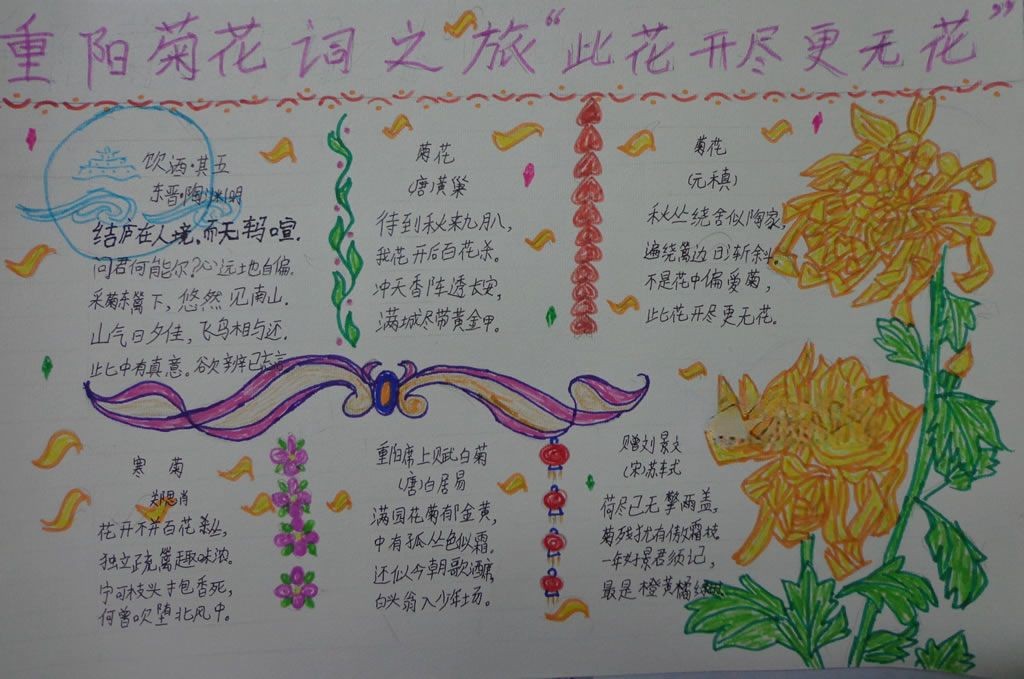 重阳菊花词之旅“此花开尽更无花”
饮酒·其五
东晋·陶渊明
结庐在人境,而无车马喧.
问君何能尔?心远土也自偏.
采菊东篱下,悠然见南山.
山气日夕佳,飞鸟相与还.
此中有真意。欲辨已忘言
菊花
(唐)黄巢
待到秋来九月八,
我花开后百花杀。
冲天香阵透长安,
满城尽带黄金甲。
菊花
(元稹)
秋丛绕舍似陶家,
遍绕篱边日渐斜。
不是花中偏爱菊,
此花开尽更无花。
寒菊
郑思肖
花开不并百花丛,
独立疏篱趣味浓。
宁可枝头抱香死,
何曾吹堕北风中。
重阳席上赋白菊
(唐)白居易
满园花菊郁金黄,
中有孤丛色似霜。
还似今朝歌酒席,
白头翁入少年场。
赠刘景文
(宋)苏轼
荷尽已无擎雨盖,
菊残犹有傲霜枝
一年好景君须记,
最是橙黄橘绿